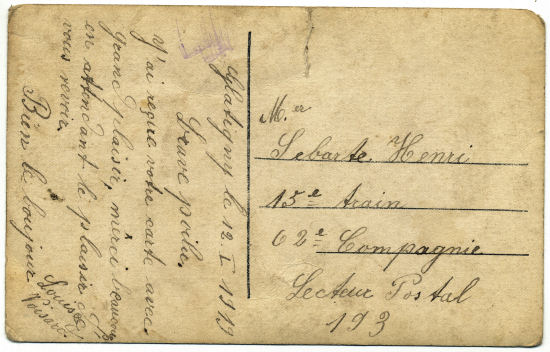 Glatigny le 12. I 1919
Brave poilu.
J'ai reçue votre carte avec
grand plaisir, merci beaucoup
en attendant le plaisir de
vous revoir.
Bien le bonjour
Louise
M.er
Lebarte Henri
15e train
62e Compagnie
Secteur Postal
193